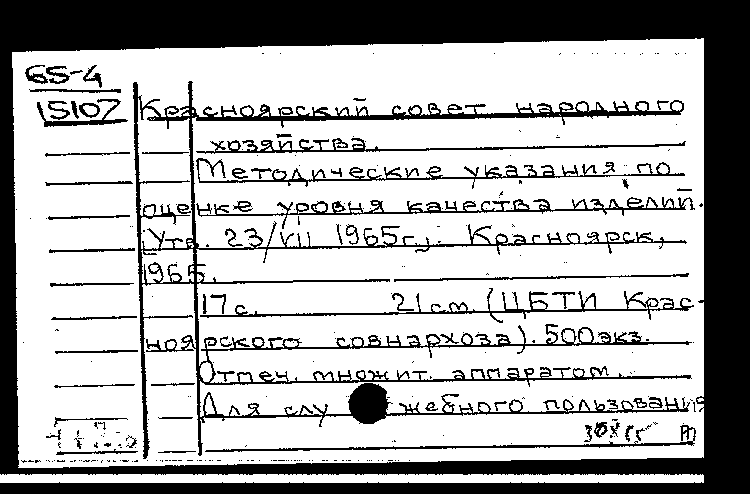 65-4
15107 Красноярский совет народного
хозяйства.
Методические указания по
оценке уровня качества изделий.
[Утв. 23/VII 1965г.]. Красноярск,
1965.
17 с. 21 см. (ЦБТИ Крас-
ноярского совнархоза). 500 экз.
Отпеч. множит. аппаратом.
Для служебного пользования